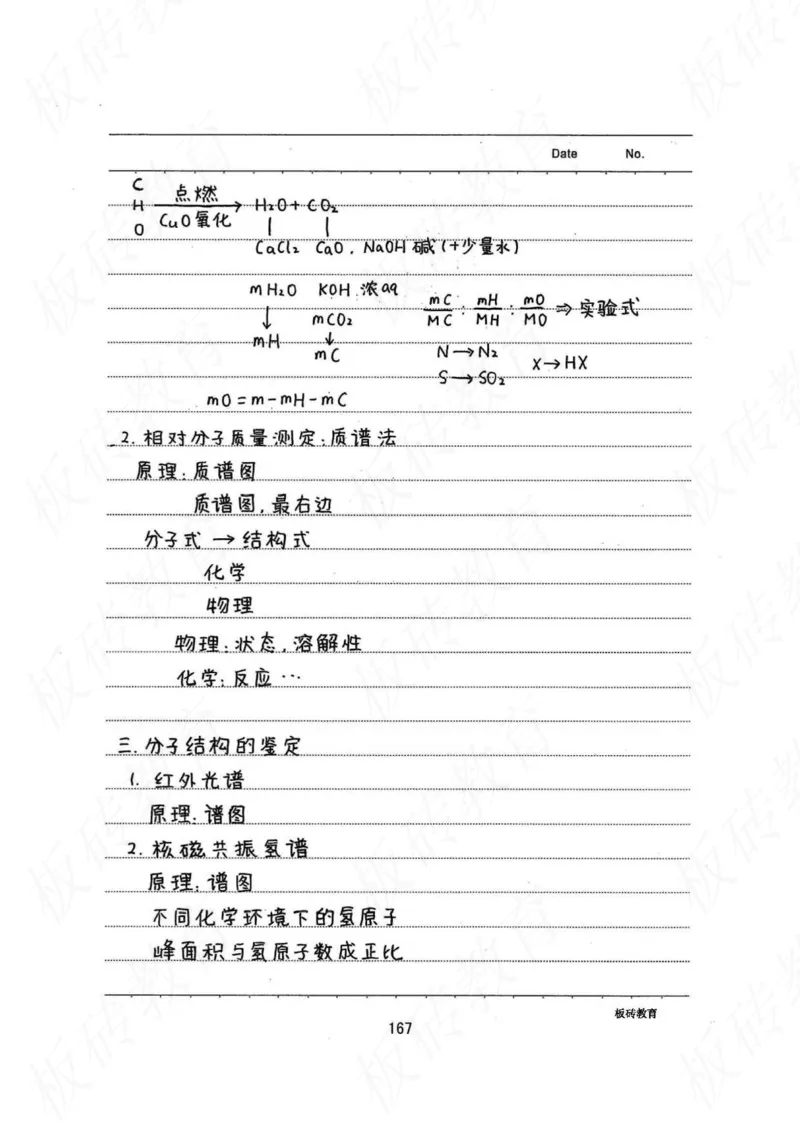 Date No.
C
H 点燃 CuO氧化 → H2O + CO2
O
CaCl2 CaO、NaOH 碱(+少量水)
mH2O KOH 浓aq
mC/MC : mH/MH : mO/MO ⇒ 实验式
↓ mCO2
mH ↓
mC
N → N2
X → HX
S → SO2
mO = m - mH - mC
2. 相对分子质量测定:质谱法
原理:质谱图
质谱图,最右边
分子式 → 结构式
化学
物理
物理:状态,溶解性
化学:反应…
三.分子结构的鉴定
1. 红外光谱
原理:谱图
2. 核磁共振氢谱
原理:谱图
不同化学环境下的氢原子
峰面积与氢原子数成正比
板砖教育
167